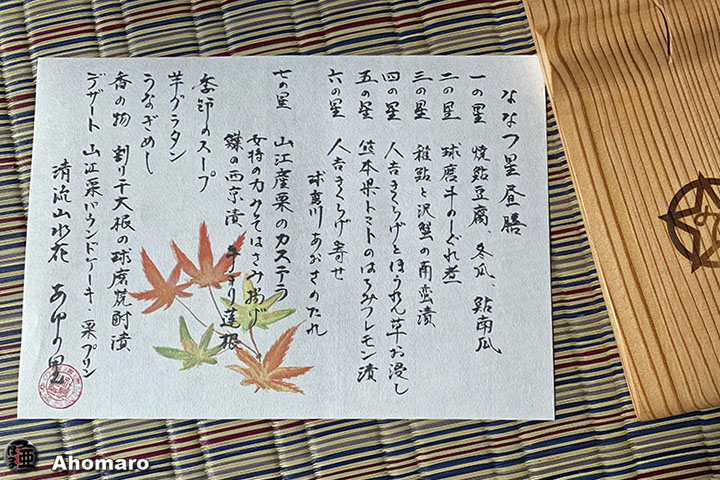 ななつ星昼膳
一の星 焼鮎豆腐 冬瓜、鮎南瓜
二の星 球磨牛のしぐれ煮
三の星 稚鮎と沢蟹の南蛮漬
四の星 人吉きくらげとほうれん草お浸し
五の星 熊本県トマトのはちみつレモン漬
六の星 人吉きくらげ寄せ
球磨川 あおさのたれ
七の星 山江産栗のカステラ
女将の力みそてはさみ揚げ
鰈の西京漬 手まり蓮根
季節のスープ
芋グラタン
うなぎめし
香の物 割り干大根の球磨焼酎漬
デザート 山江栗パウンドケーキ・栗プリン
清流山水花 あゆの里
Ahomaro